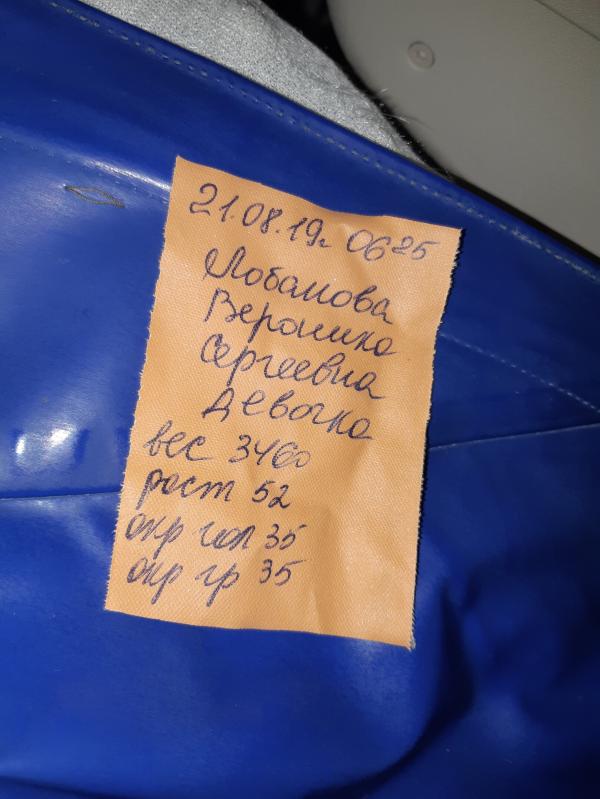 21.08.19г. 06 25
Лобанова
Вероника
Сергеевна
девочка
вес 3460
рост 52
окр гол 35
окр гр 35